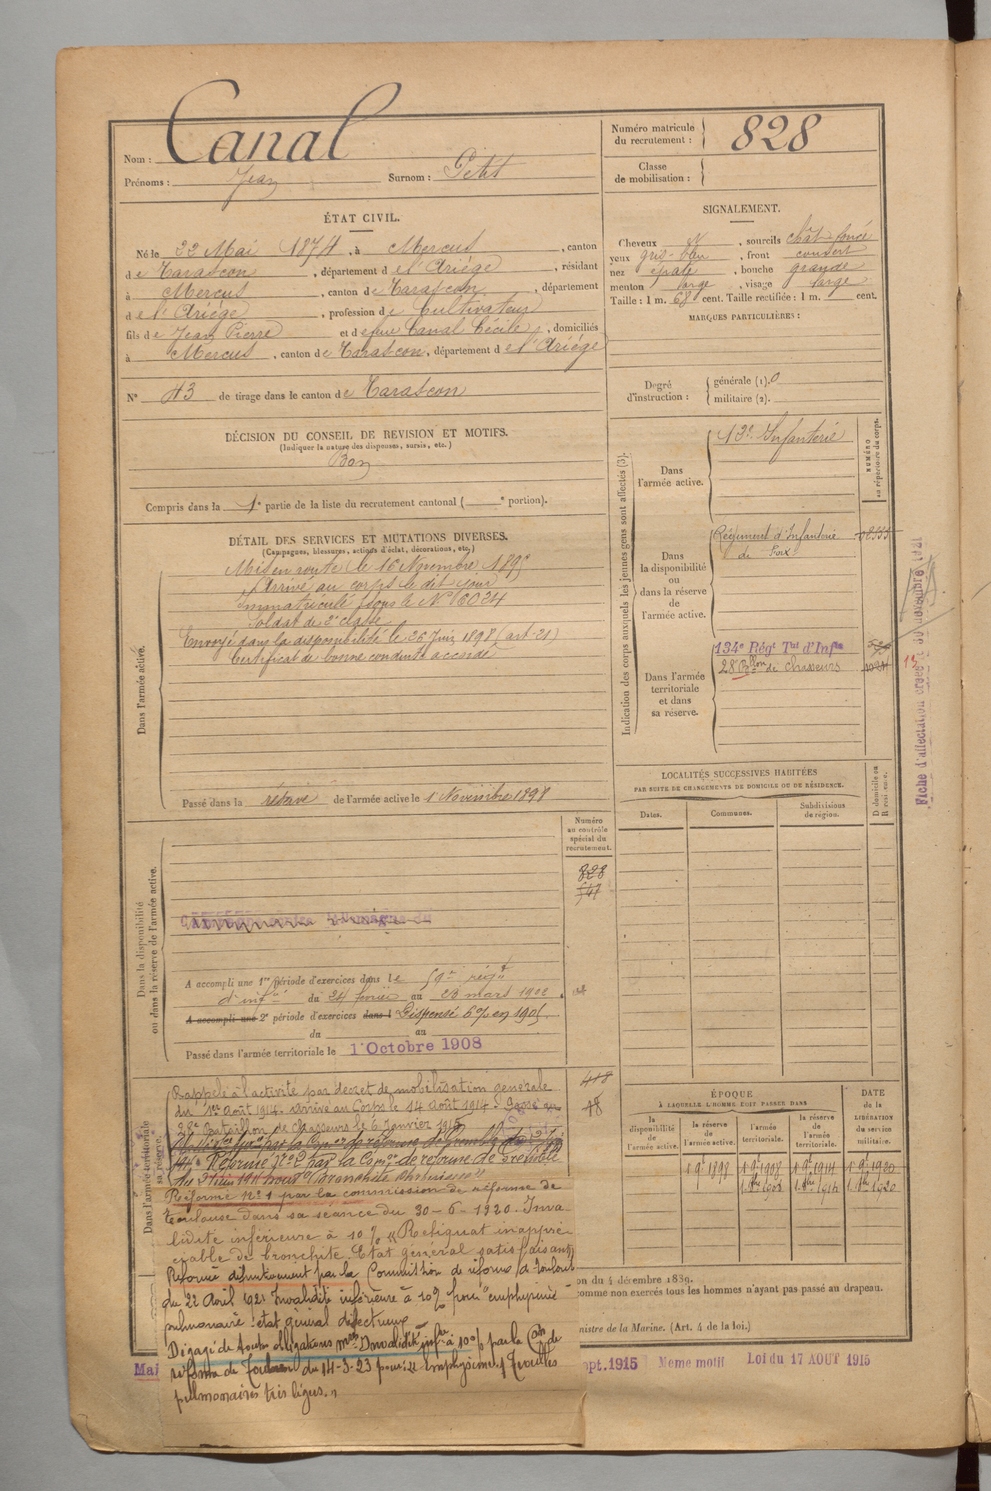 Nom : Canal
Prénoms : Jean Surnom : Petit
Numéro matricule
du recrutement : 828
Classe
de mobilisation :
ÉTAT CIVIL.
Né le 22 Mai 1874, à Mercus, canton
de Tarascon, département de l'Ariége, résidant
à Mercus, canton de Tarascon, département
de l'Ariége, profession de Cultivateur
fils de Jean Pierre et de feue Canal Cécile, domiciliés
à Mercus, canton de Tarascon, département de l'Ariége
N° 43 de tirage dans le canton de Tarascon
SIGNALEMENT.
Cheveux , sourcils chât. foncé
yeux gris-bleu, front couvert
nez épaté, bouche grande
menton large, visage large
Taille : 1 m. 68 cent. Taille rectifiée : 1 m. cent.
MARQUES PARTICULIÈRES :
Degré
d'instruction :
générale (1). 0
militaire (2).
DÉCISION DU CONSEIL DE REVISION ET MOTIFS.
(Indiquer la nature des dispenses, sursis, etc.)
Bon
Compris dans la 1e partie de la liste du recrutement cantonal ( e portion).
DÉTAIL DES SERVICES ET MUTATIONS DIVERSES.
(Campagnes, blessures, actions d'éclat, décorations, etc.)
Dans l'armée active.
Mis en route le 16 Novembre 189
Arrivé au corps le dit jour
Immatriculé sous le N° 6024
Soldat de 2e classe
Envoyé dans la disponibilité le 26 Juin 1898 (art. 21)
Certificat de bonne conduite accordé
Passé dans la réserve de l'armée active le 1 Novembre 1898
Indication des corps auxquels les jeunes gens sont affectés (3).
NUMÉRO
au répertoire du corps.
Dans
l'armée active.
Infanterie
Dans
la disponibilité
ou
dans la réserve
de
l'armée active.
Régiment d'Infanterie
de Foix
Dans l'armée
territoriale
et dans
sa réserve.
134e Régt Tal d'Infie
28 Bllon de chasseurs
Fiche d'affectation
LOCALITÉS SUCCESSIVES HABITÉES
PAR SUITE DE CHANGEMENTS DE DOMICILE OU DE RÉSIDENCE.
Dates.
Communes.
Subdivisions
de région.
D domicile ou
R résidence.
Dans la disponibilité
ou dans la réserve de l'armée active.
Numéro
au contrôle
spécial du
recrutement.
828
A accompli une 1re période d'exercices dans le 59me régt
d'infie du 24 février au 23 mars 1902.
A accompli une 2e période d'exercices dans l Dispensé
du au
Passé dans l'armée territoriale le 1 Octobre 1908
Dans l'armée territoriale
Rappelé à l'activité par decret de mobilisation générale
du 1er Août 1914. Arrivé au Corps le 14 Août 1914. Passé au
28e Bataillon de Chasseurs le 6 Janvier 191
Réformé n° 2 par la Comon de réforme de Grenoble
Réformé n° 1 par la commission de réforme de
Toulouse dans sa séance du 30-6-1920. Inva-
lidité inférieure à 10 % "Reliquat inappré-
ciable de bronchite. Etat général satisfaisant"
Réformé définitivement par la Commission de réforme de Toulouse
du 22 Avril 1921 Invalidité inférieure à 10% pour "emphysème
pulmonaire : état général défectueux
Dégagé de toutes obligations mres Invalidité infre à 10% par la Con de
réforme de du 14-3-23 pour : Emphysème
pulmonaires très légers."
ÉPOQUE
À LAQUELLE L'HOMME DOIT PASSER DANS
DATE
de la
LIBÉRATION
du service
militaire.
la
disponibilité
de
l'armée
active.
la
réserve
de
l'armée active.
l'armée
territoriale.
la
réserve
de
l'armée
territoriale.
1 9bre 1898
on du 4 décembre 1889.
comme non exercés tous les hommes n'ayant pas passé au drapeau.
nistre de la Marine. (Art. 4 de la loi.)
Mai
pt.1915 Meme motif Loi du 17 AOUT 1915